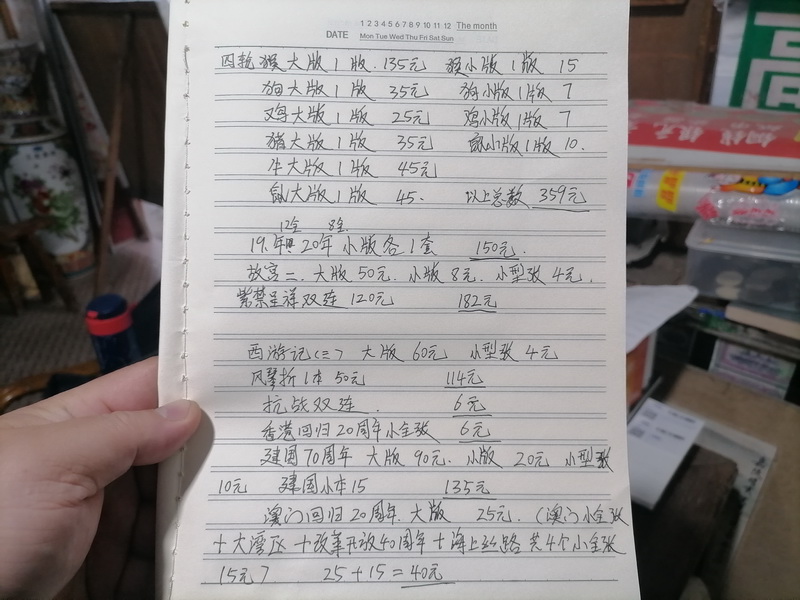 1 2 3 4 5 6 7 8 9 10 11 12 The month
DATE Mon Tue Wed Thu Fri Sat Sun
四轮猴大版1版 135元 猴小版1版 15
狗大版1版 35元 狗小版1版 7
鸡大版1版 25元 鸡小版1版 7
猪大版1版 35元 鼠小版1版 10.
牛大版1版 45元
鼠大版1版 45. 以上总数 359元
12全 8全
19.年 20年小版各1套 150元.
故宫二.大版50元.小版8元.小型张4元.
紫禁呈祥双连 120元 182元
西游记(三) 大版 60元 小型张 4元
风琴折1本50元 114元
抗战双连. 6元
香港回归20周年小全张 6元
建国70周年 大版 90元. 小版 20元 小型张
10元 建国小本15 135元
澳门回归20周年.大版 25元.(澳门小全张
+大湾区+改革开放40周年+海上丝路 共4个小全张
15元) 25+15=40元
高